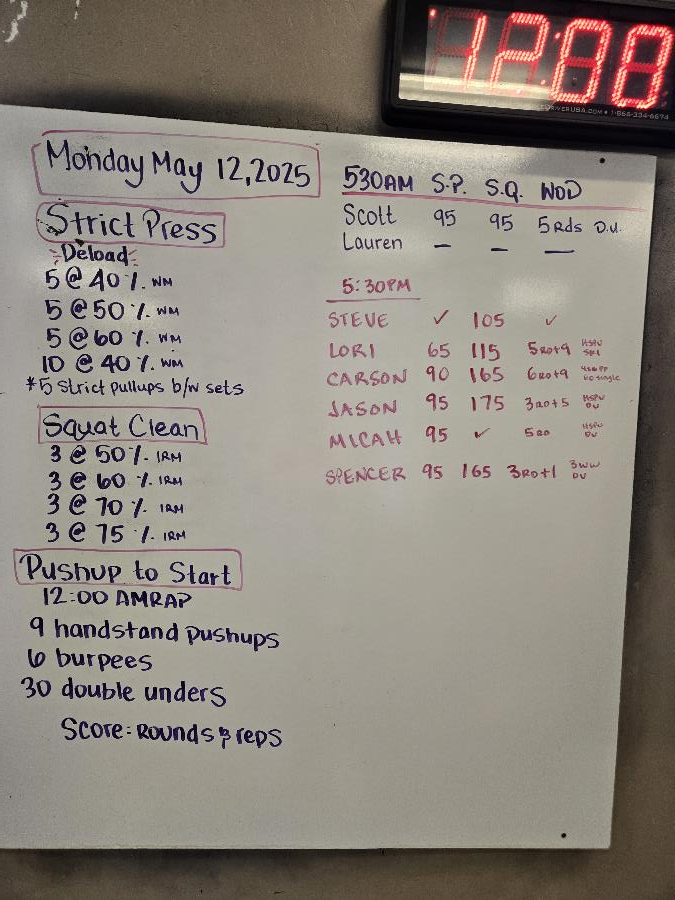 12:00
DRIVERUSA.COM • 1-866-334-6674
Monday May 12, 2025
Strict Press
Deload
5 @ 40 %. WM
5 @ 50 %. WM
5 @ 60 %. WM
10 @ 40 %. WM
*5 Strict pullups b/w sets
Squat Clean
3 @ 50 %. 1RM
3 @ 60 %. 1RM
3 @ 70 %. 1RM
3 @ 75 %. 1RM
Pushup to Start
12:00 AMRAP
9 handstand pushups
6 burpees
30 double unders
Score: Rounds & reps
530AM S.P. S.Q. WOD
Scott 95 95 5 Rds D.U.
Lauren — — —
5:30PM
STEVE ✓ 105 ✓
LORI 65 115 5RD+9 HSPU
CARSON 90 165 6RD+9
JASON 95 175 3RD+5 HSPU DU
MICAH 95 ✓ 5RD HSPU DU
SPENCER 95 165 3RD+1 3WW DU